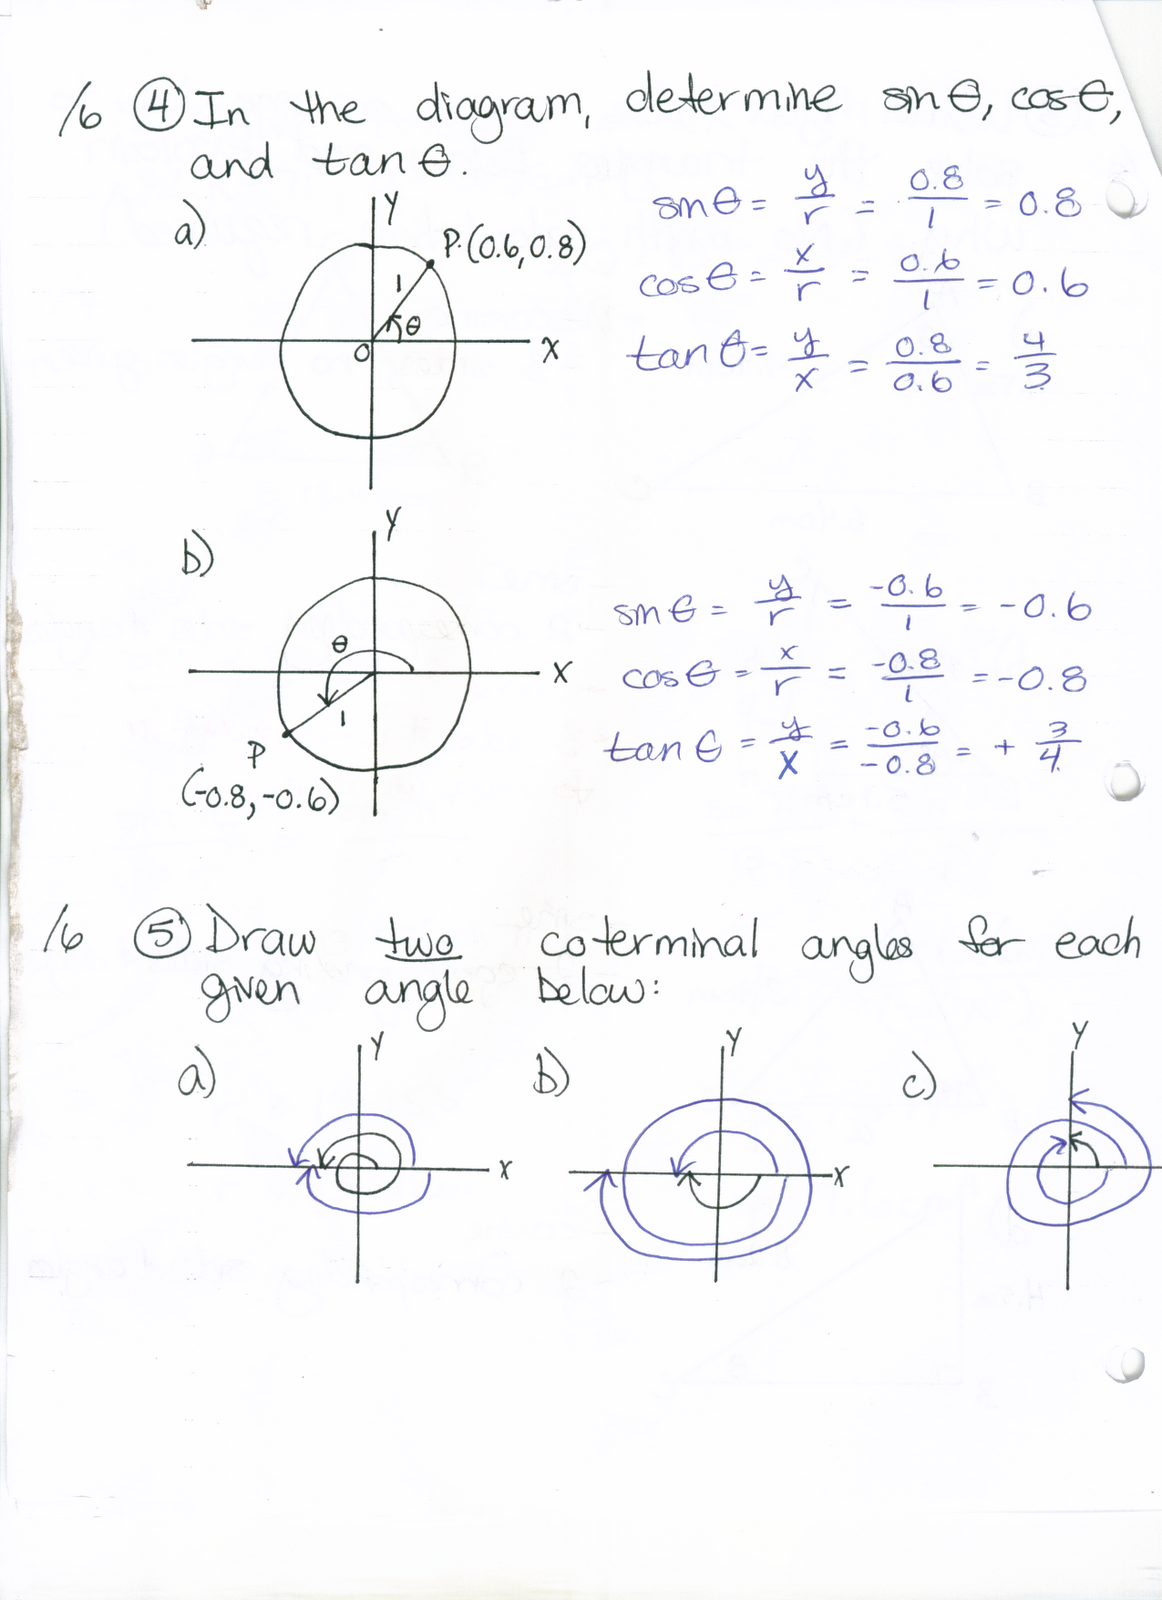 /6 ④ In the diagram, determine sin θ, cos θ,
and tan θ.
a)
y
P(0.6, 0.8)
1
θ
O
x
sin θ = y/r = 0.8/1 = 0.8
cos θ = x/r = 0.6/1 = 0.6
tan θ = y/x = 0.8/0.6 = 4/3
b)
y
θ
x
1
P
(-0.8, -0.6)
sin θ = y/r = -0.6/1 = -0.6
cos θ = x/r = -0.8/1 = -0.8
tan θ = y/x = -0.6/-0.8 = + 3/4
/6 ⑤ Draw two coterminal angles for each
given angle below:
a)
y
x
b)
y
x
c)
y